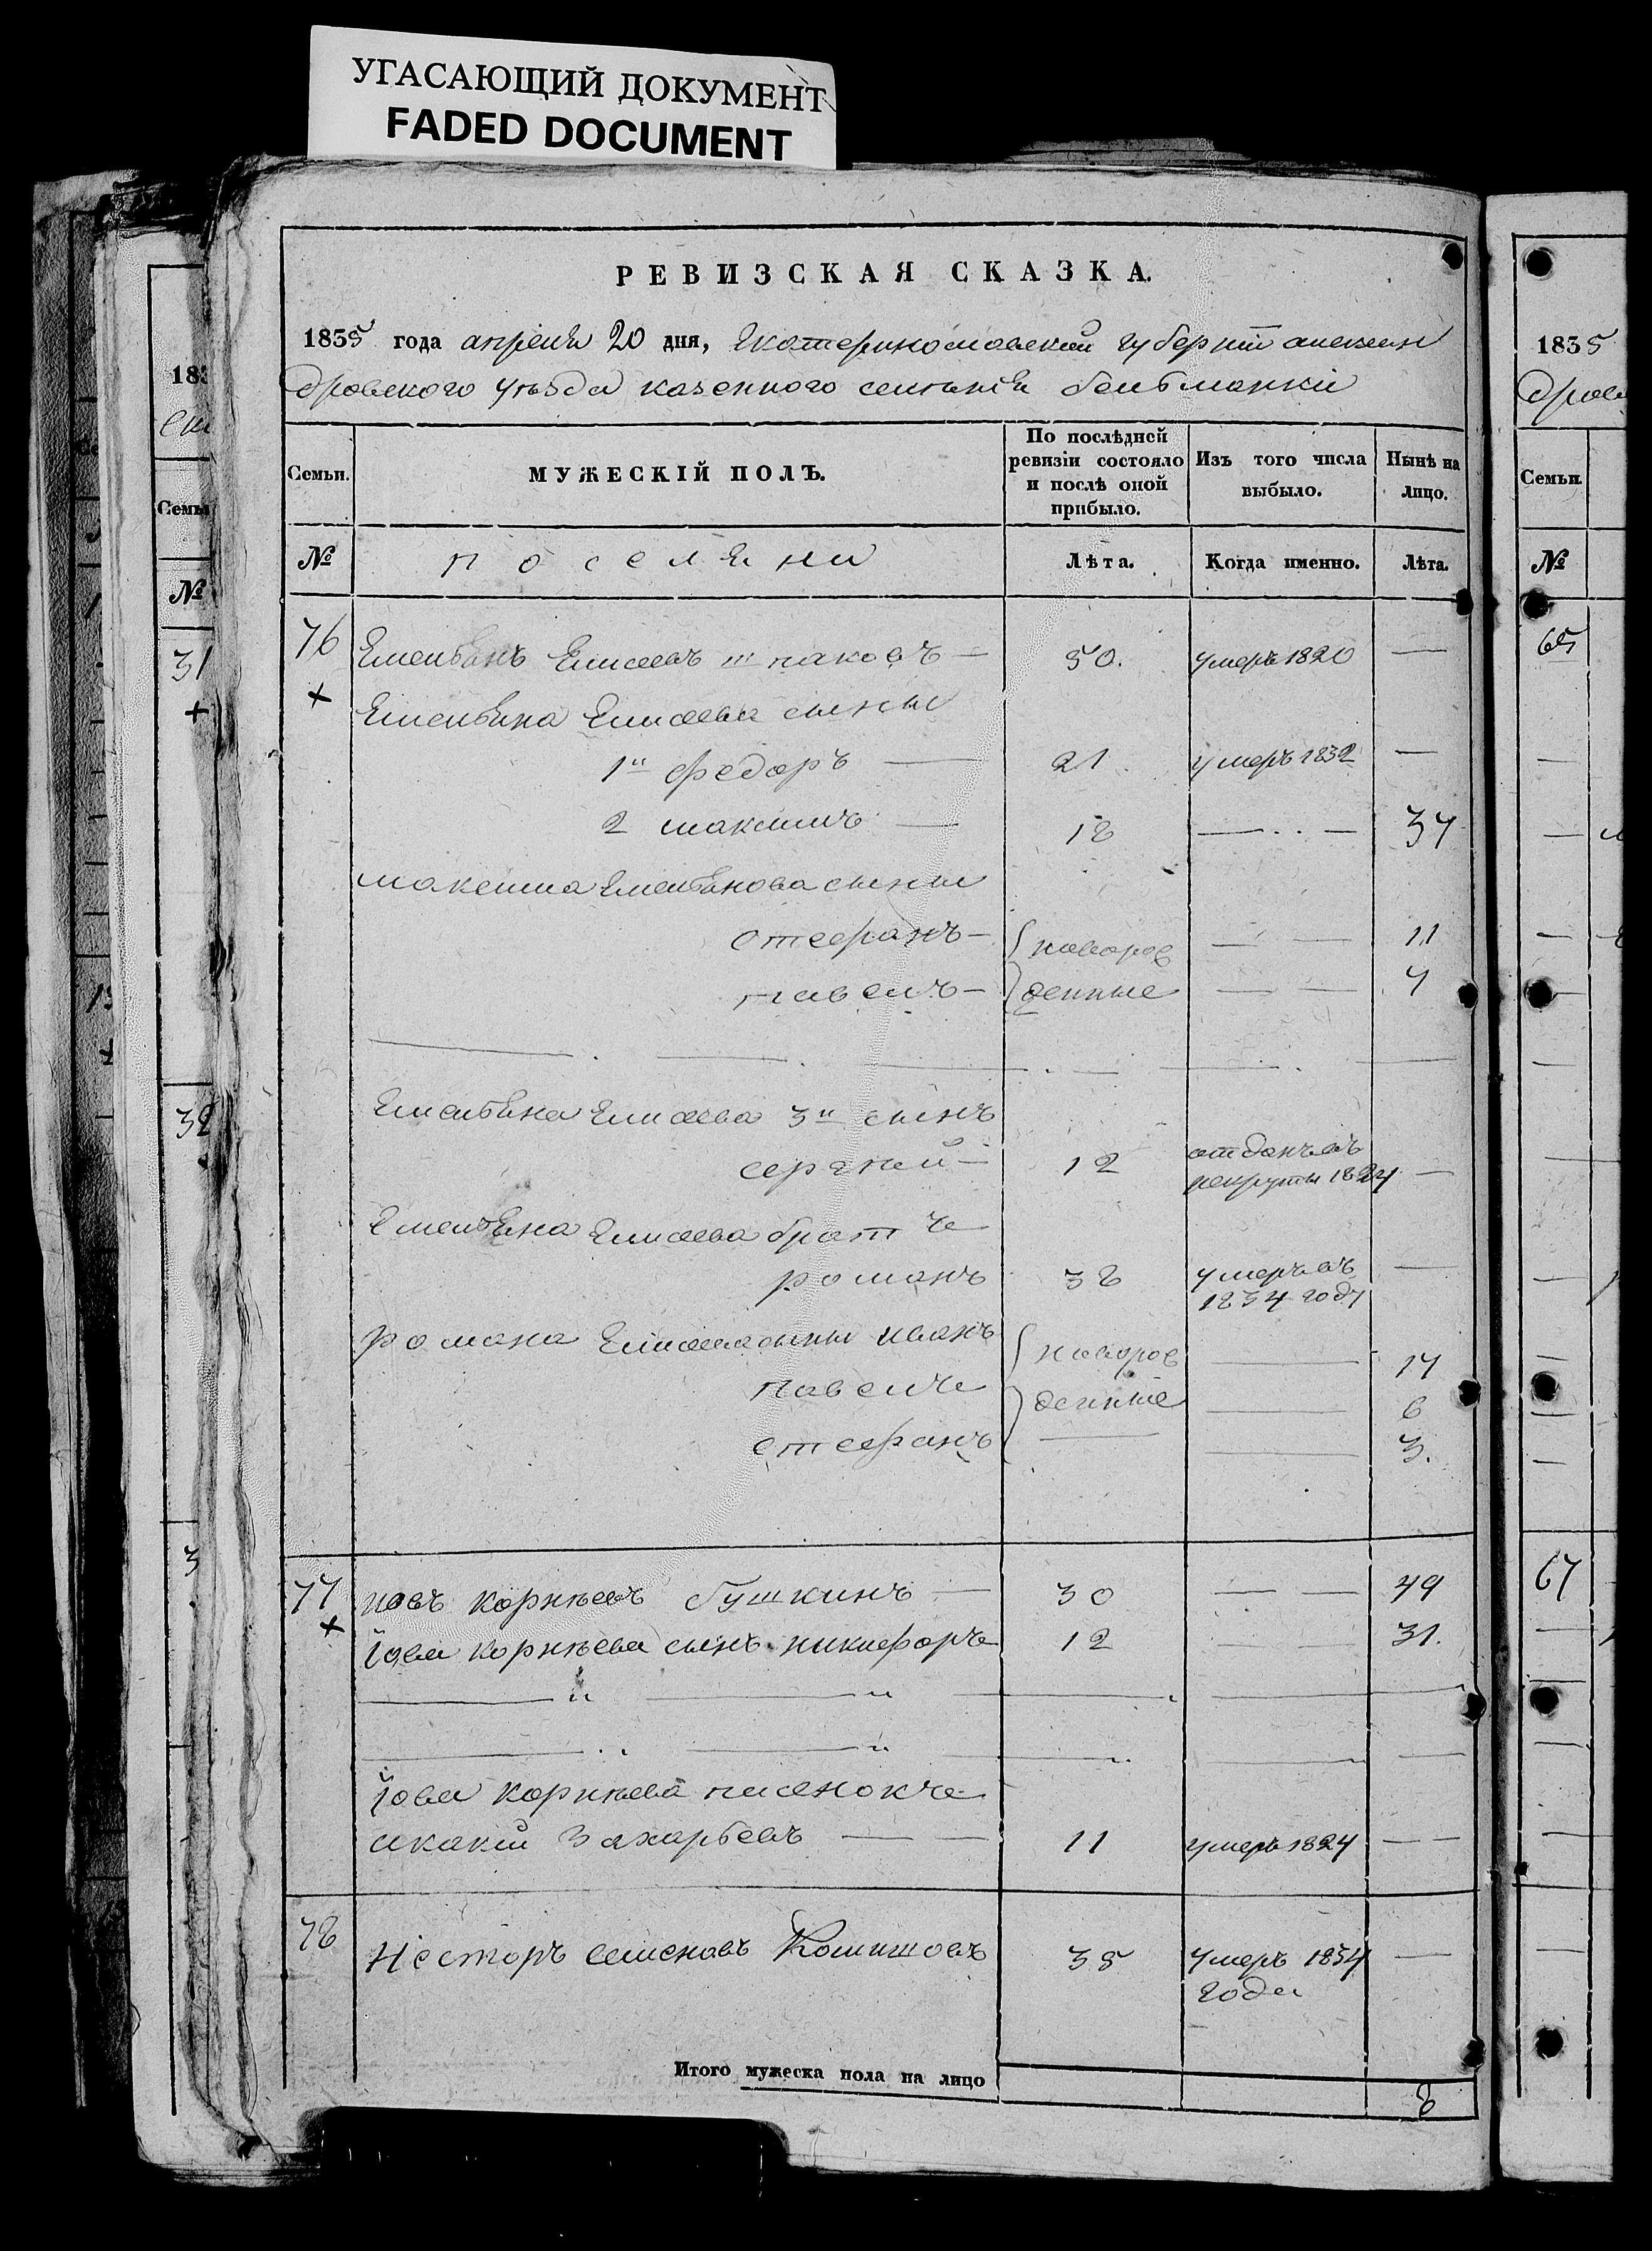 УГАСАЮЩИЙ ДОКУМЕНТ
FADED DOCUMENT
РЕВИЗСКАЯ СКАЗКА.
1835 года апреля 20 дня, Екатеринославской губернiи алексан
дровского уѣзда казенного селенiя бельманки
Семьи. МУЖЕСКІЙ ПОЛЪ. По послѣдней ревизіи состояло и послѣ оной прибыло. Изъ того числа выбыло. Нынѣ на лицо.
№ поселяни Лѣта. Когда именно. Лѣта.
76 Емельянъ Елисеевъ шпаковъ — 50. умеръ 1820 —
+ Емельяна Елисеева сыны
1й федоръ — 21 умеръ 1832 —
2 максимъ — 18 — .. — 34
максима Емельянова сыны
стефанъ — новорож — — 11
павелъ — денные — — 4
Емельяна Елисеева 3й сынъ
сергѣй — 12 отданъ въ рекруты 1824 —
Емельяна Елисеева братъ
романъ 38 умеръ въ 1834 году —
романа Елисеева сыны иванъ новорож — 14
павелъ денные — 6
стефанъ — — 3.
77 иовъ корнѣевъ бушкинъ — 30 — — 49
+ іова корнѣева сынъ никифоръ 12 — 31.
іова корнѣева пасенокъ
акакий Захарьевъ — — 11 умеръ 1824 — —
78 Несторъ семеновъ 35 умеръ 1834 года —
Итого мужеска пола на лицо 8
183
Семьи
№
31
+
32
3
1835
Семьи.
№
65
67